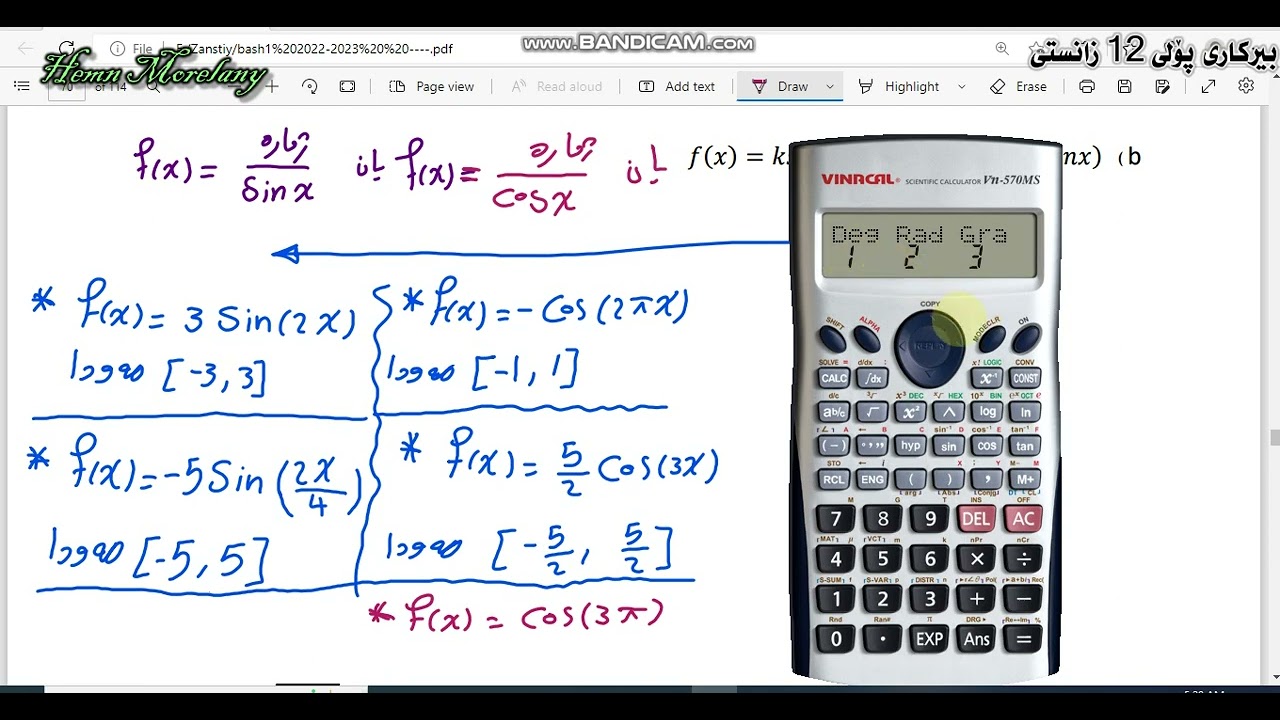 WWW.BANDICAM.COM
File
Zanstiy/bash1%202022-2023%20%20----.pdf
Hemn Morelany
بیرکاری پۆلی 12 زانستی
of 114
Page view
Read aloud
Add text
Draw
Highlight
Erase
f(x) = ژمارە/sin x یان f(x) = ژمارە/cos x یان
f(x) = k
nx) (b
VINACAL SCIENTIFIC CALCULATOR Vn-570MS
Deg Rad Gra
1 2 3
COPY
SHIFT ALPHA REPLAY MODE CLR ON
SOLVE = d/dx : x! LOGIC CONV
CALC ∫dx x⁻¹ CONST
d/c ³√ x³ DEC ˣ√ HEX 10ˣ BIN eˣ OCT e
ab/c √ x² ^ log ln
A B C sin⁻¹ D cos⁻¹ E tan⁻¹ F
(−) °,,, hyp sin cos tan
STO X ; Y M− M
RCL ENG ( ) , M+
INS OFF
7 8 9 DEL AC
nPr nCr
4 5 6 × ÷
1 2 3 + −
Rnd Ran# π DRG▸ %
0 . EXP Ans =
* f(x) = 3 Sin(2x)
مەودا [-3, 3]
* f(x) = - Cos(2πx)
مەودا [-1, 1]
* f(x) = -5 Sin(2x/4)
مەودا [-5, 5]
* f(x) = 5/2 Cos(3x)
مەودا [-5/2, 5/2]
* f(x) = Cos(3π)